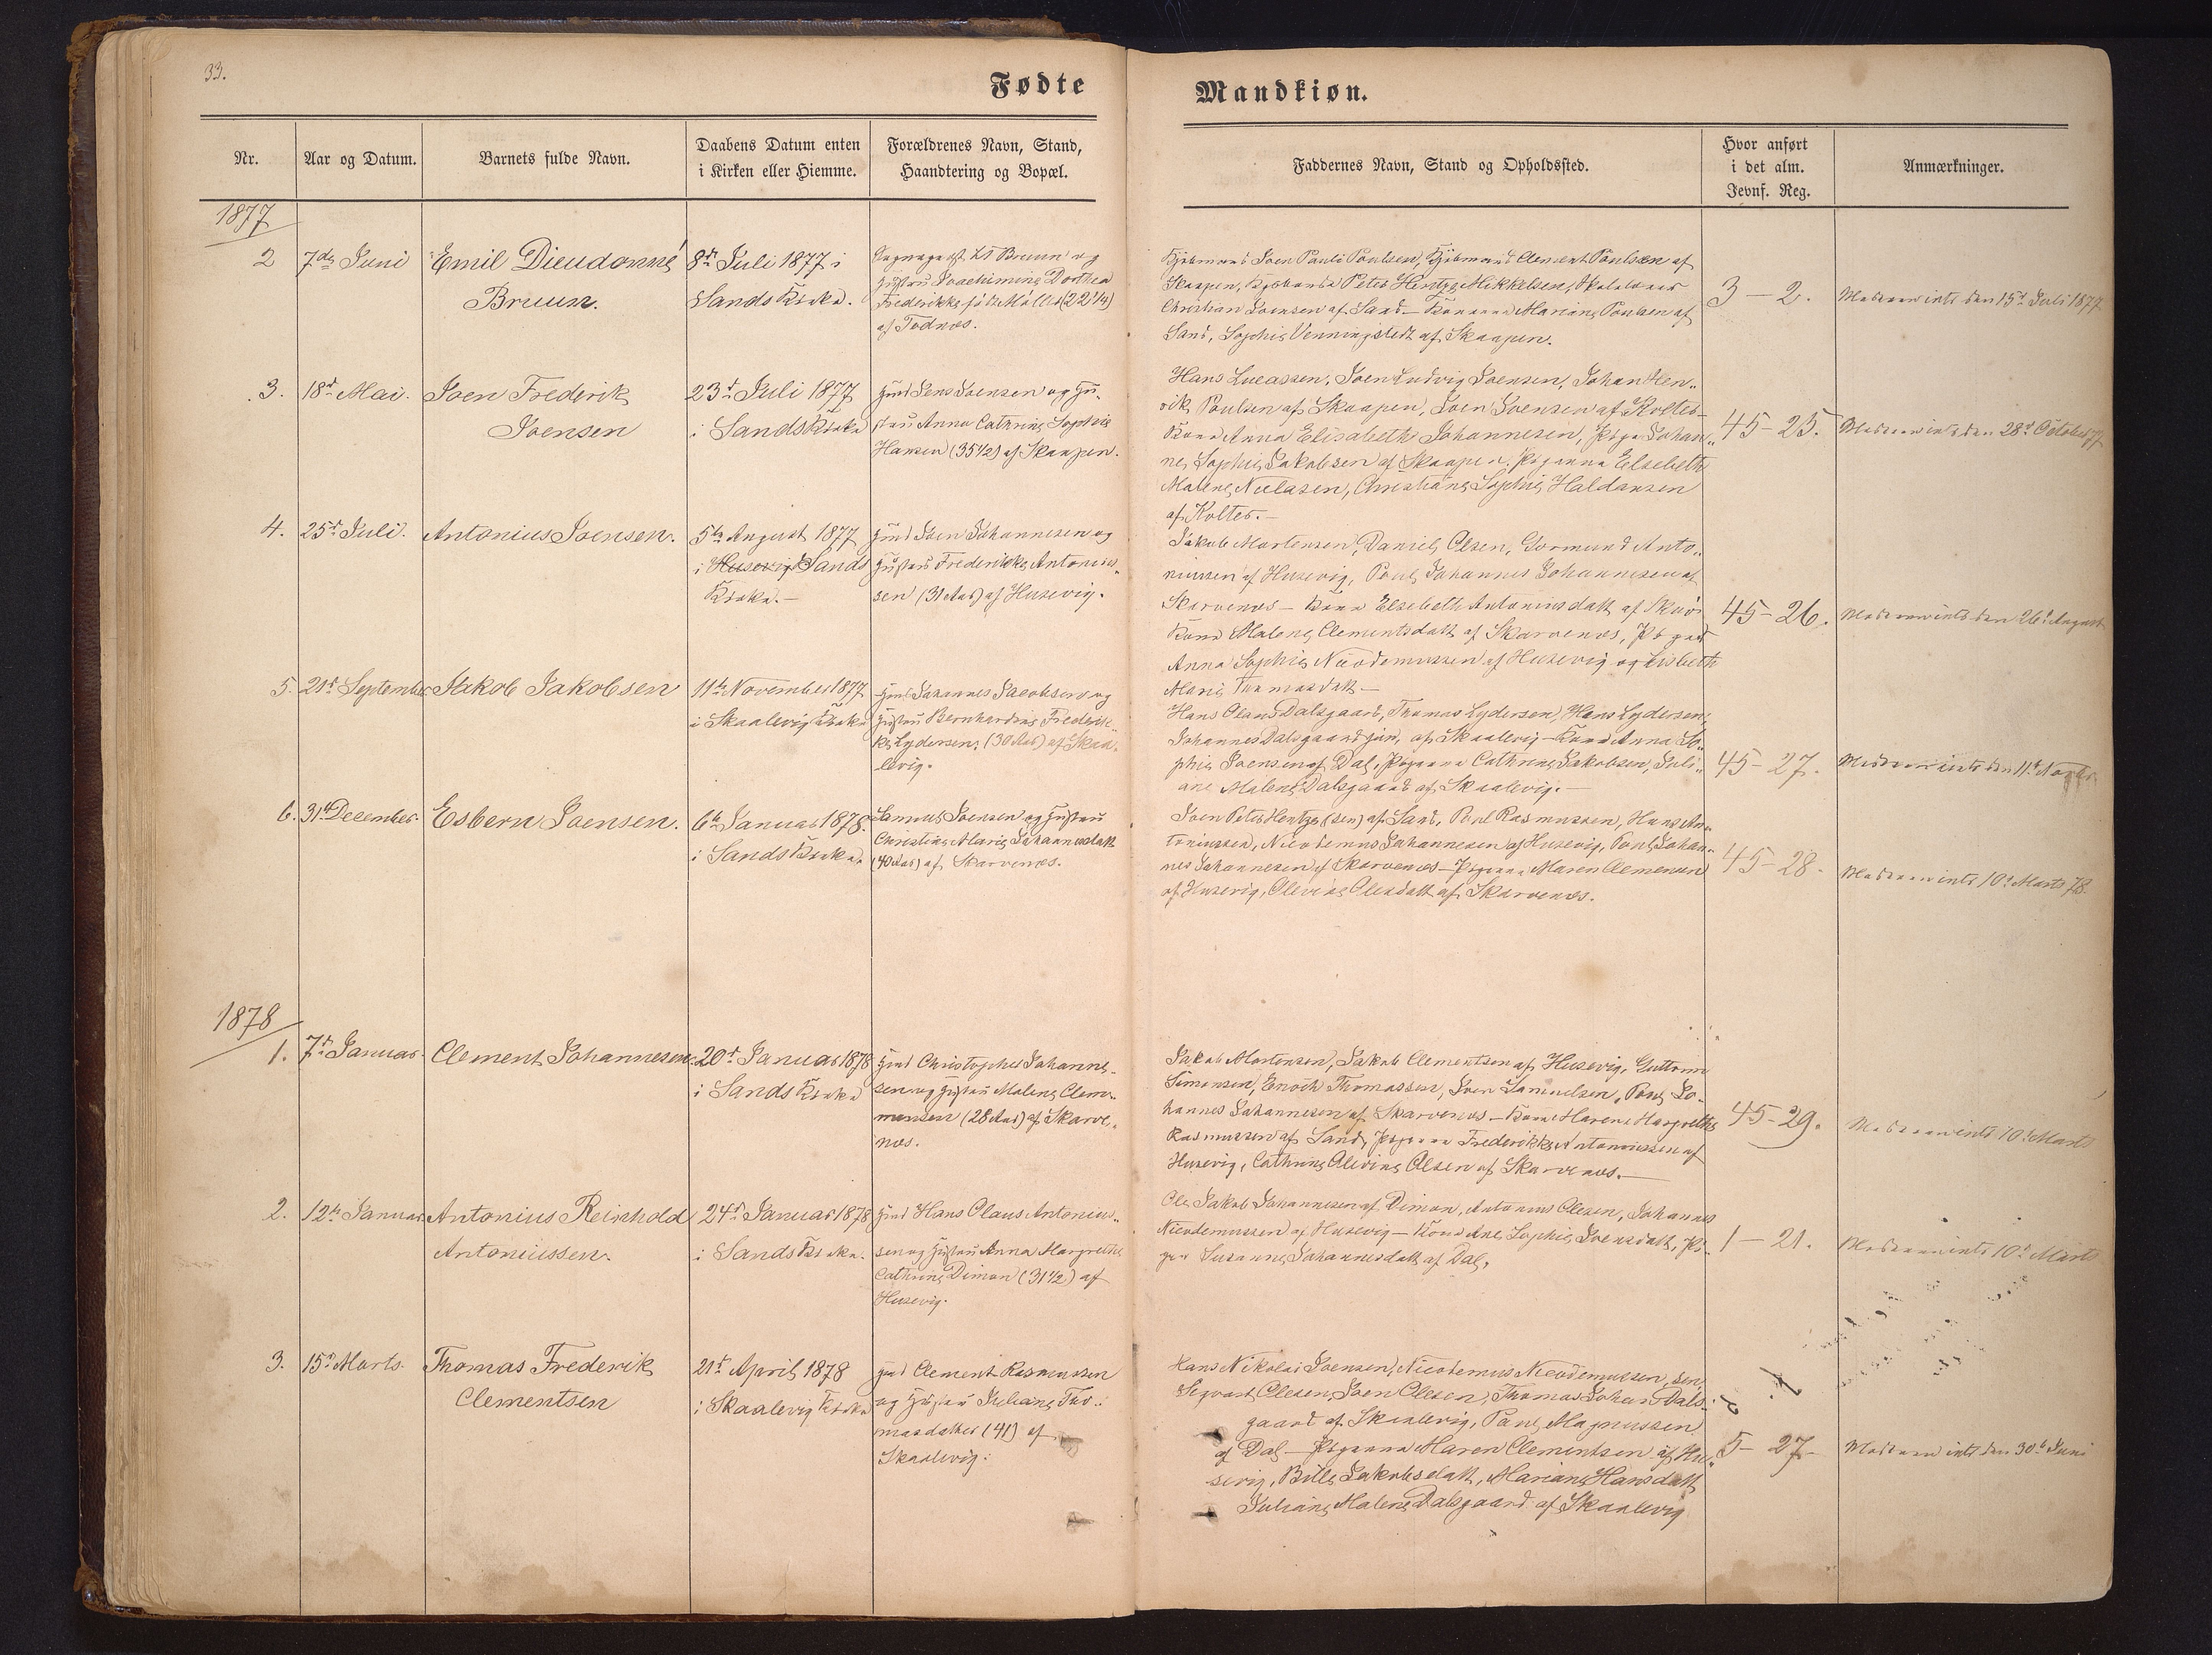 33.
Fødte
Mandkiøn.
Nr.
Aar og Datum.
Barnets fulde Navn.
Daabens Datum enten
i Kirken eller Hiemme.
Forældrenes Navn, Stand,
Haandtering og Bopæl.
Faddernes Navn, Stand og Opholdssted.
Hvor anført
i det alm.
Jevnf. Reg.
Anmærkninger.
1877
2
7de Juni
Emil Dieudonné
Bruun.
8de Juli 1877 i
Sands Kirke.
Bruun og
Hustru Joachimine Dorthea
Frederikke født Møller (22 1/4)
af Todnæs.
Joen Pauli Poulsen, Clement Poulsen af
Skaapen, Peter Hentze Mikkelsen,
Christian Joensen af Sand - Konerne Mariane Poulsen af
Sand, Sophie Venningstedt af Skaapen.
3 - 2.
Moderen intr den 15de Juli 1877
3.
18de Mai.
Joen Frederik
Joensen
23de Juli 1877
i Sands Kirke
Gmd Jens Joensen og Hu-
stru Anna Cathrine Sophie
Hansen (35 1/2) af Skaapen.
Hans Lucassen, Joen Ludvig Joensen, Johan Hen-
rik Poulsen af Skaapen, Joen Joensen af Kolter -
Kone Anna Elisabeth Johannesen, Pige Johan-
ne Sophie Jakobsen af Skaapen, Pigerne Elsebeth
Malene Niclasen, Christiane Sophie Haldansen
af Kolter. -
45 - 25.
Moderen intr den 28de October 77
4.
25de Juli.
Antonius Joensen.
5te August 1877
i Husevig Sands
Kirke. -
Gmd Joen Johannesen og
Hustru Frederikke Antonius-
sen (31 Aar) af Husevig.
Jakob Mortensen, Daniel Olsen, Gormund Anto-
niussen af Husevig, Poul Johannes Johannesen af
Skarvenæs - Kone Elsebeth Antoniusdatt af
Kone Malene Clementsdatt af Skarvenæs, Piger
Anna Sophie Nicodemussen af Husevig og Lisbeth
Marie Thomasdatt -
45 - 26.
Moderen intr den 26de August
5.
21de September
Jakob Jakobsen
11te November 1877
i Skaalevig Kirke
Gmd Johannes Jacobsen og
Hustru Bernhardine Frederik-
ke Lydersen (30 Aar) af Skaa-
levig.
Hans Olaus Dalsgaard, Thomas Lydersen, Hans Lydersen,
Johannes Dalsgaard jun. af Skaalevig - Kone Anna So-
phie Joensen af Dal, Pigerne Cathrine Jakobsen, Juli-
ane Malene Dalsgaard af Skaalevig. -
45 - 27.
Moderen intr den 11te Novbr.
6.
31te December.
Esbern Joensen.
6te Januar 1878.
i Sands Kirke.
Samuel Joensen og Hustru
Christine Marie Johannesdatt
(40 Aar) af Skarvenæs.
Joen Peter Hentze (sen) af Sand, Poul Rasmussen, Hans An-
toniussen, Nicodemus Johannesen af Husevig, Poul Johan-
nes Johannesen af Skarvenæs - Pigerne Maren Clemensen
af Husevig, Olevine Olesdatt af Skarvenæs.
45 - 28.
Moderen intr 10de Marts 78.
1878
1.
7de Januar.
Clement Johannesen
20de Januar 1878
i Sands Kirke
Gmd Christopher Johanne-
sen og Hustru Malene Clem-
mensen (28 Aar) af Skarve-
næs.
Jakob Mortensen, Jakob Clementsen af Husevig, Guttorm
Simonsen, Enoch Thomassen, Joen Samuelsen, Poul Jo-
hannes Johannesen af Skarvenæs - Kone Maren Margrethe
Rasmussen af Sand, Pigerne Frederikke Antoniussen af
Husevig, Cathrine Olivine Olsen af Skarvenæs. -
45 - 29.
Moderen intr 10de Marts
2.
12te Januar
Antonius Reinhold
Antoniussen.
24de Januar 1878
i Sands Kirke.
Gmd Hans Olaus Antonius-
sen og Hustru Anna Margrethe
Cathrine Dimon (31 1/2) af
Husevig.
Ole Jakob Johannesen af Dimon, Antonius Olesen, Johannes
Nicodemussen af Husevig - Kone Ane Sophie Joensdatt, Pi-
ger Susanne Johannesdatt af Dal.
1 - 21.
Moderen intr 10de Marts
3.
15de Marts.
Thomas Frederik
Clementsen
21de April 1878
i Skaalevig Kirke
Gmd Clement Rasmussen
og Hustru Juliane Tho-
masdatter (41) af
Skaalevig.
Hans Nikolai Joensen, Nicodemus Nicodemussen, sen,
Segvart Olesen, Joen Olesen, Thomas Johan Dals-
gaard af Skaalevig, Poul Magnussen
af Dal - Pigerne Maren Clementsen af Hu-
sevig, Bille Jakobsdatt, Mariane Hansdatt,
Juliane Malene Dalsgaard af Skaalevig
5 - 27
Moderen intr den 30te Juni